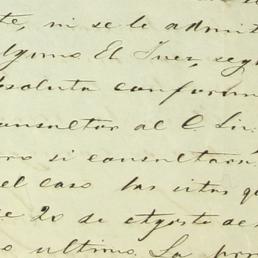 te, ni se le admit
alguno El Juez, segu
absoluta conform
consultor al C. Lic.
ro si consultara
el caso las citas q
e 20 de Agosto de
o ultimo. La pro